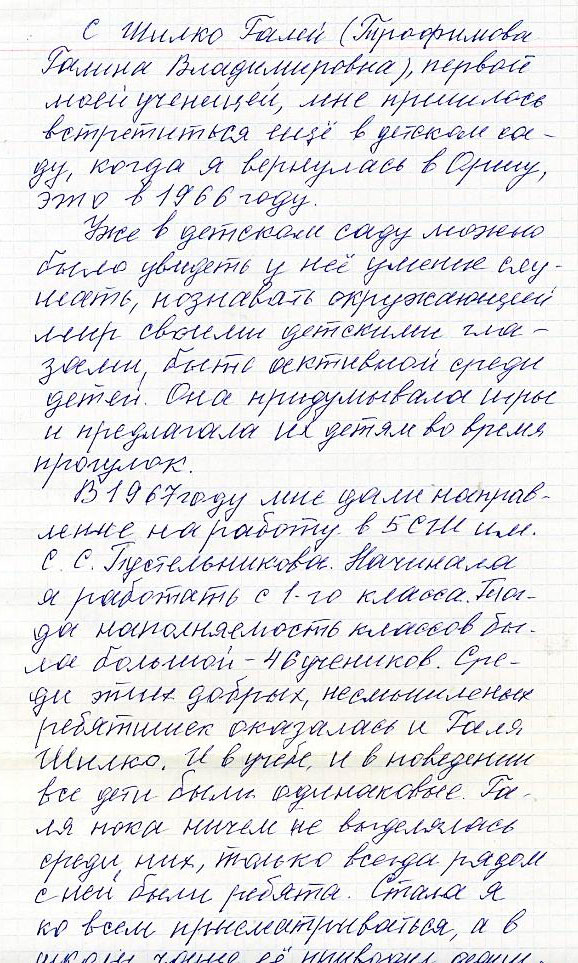 С Шилко Галей (Трофимова
Галина Владимировна), первой
моей ученицей, мне пришлось
встретиться ещё в детском са-
ду, когда я вернулась в Оршу,
это в 1966 году.
Уже в детском саду можно
было увидеть у неё умение слу-
шать, познавать окружающий
мир своими детскими гла-
зами, быть активной среди
детей. Она придумывала игры
и предлагала их детям во время
прогулок.
В 1967 году мне дали направ-
ление на работу в 5 СШ им.
С. С. Пустельникова. Начинала
я работать с 1-го класса. Тог-
да наполняемость классов бы-
ла большой - 46 учеников. Сре-
ди этих добрых, несмышленых
ребятишек оказалась и Галя
Шилко. И в учебе, и в поведении
все дети были одинаковые. Га-
ля пока ничем не выделялась
среди них, только всегда рядом
с ней были ребята. Стала я
ко всем присматриваться, а в
школу чаще её приводил